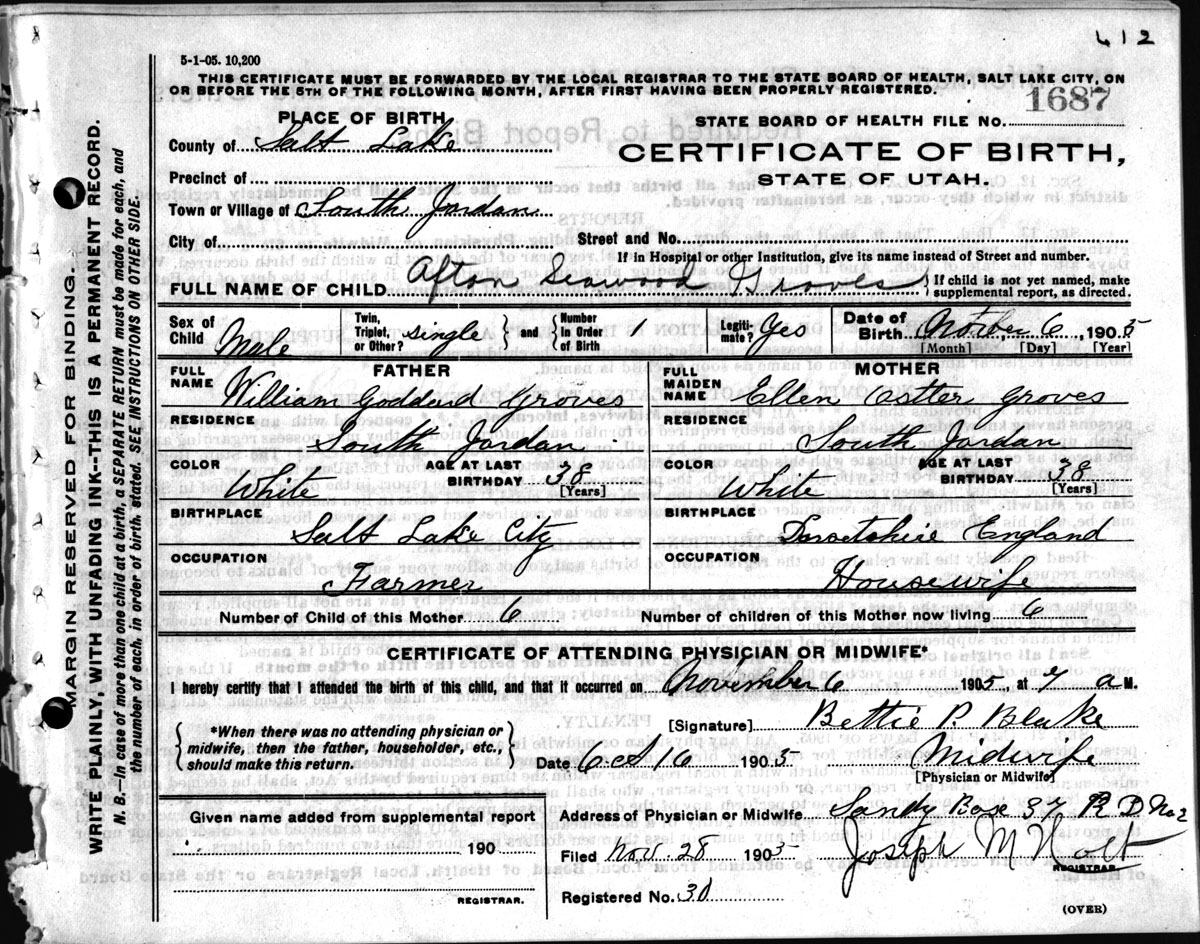 612
5-1-05. 10,200
THIS CERTIFICATE MUST BE FORWARDED BY THE LOCAL REGISTRAR TO THE STATE BOARD OF HEALTH, SALT LAKE CITY, ON
OR BEFORE THE 5TH OF THE FOLLOWING MONTH, AFTER FIRST HAVING BEEN PROPERLY REGISTERED.
PLACE OF BIRTH
STATE BOARD OF HEALTH FILE NO. 1687
County of Salt Lake
CERTIFICATE OF BIRTH,
STATE OF UTAH.
Precinct of
Town or Village of South Jordan
City of Street and No.
If in Hospital or other Institution, give its name instead of Street and number.
FULL NAME OF CHILD Afton Seawood Groves } If child is not yet named, make supplemental report, as directed.
Sex of Child Male Twin, Triplet, or Other? single } and { Number in Order of Birth 1 Legiti-mate? Yes Date of Birth 6, 1905
[Month] [Day] [Year]
FATHER
MOTHER
FULL NAME William Goddard Groves
FULL MAIDEN NAME Ellen Ostler Groves
RESIDENCE South Jordan
RESIDENCE South Jordan
COLOR White AGE AT LAST BIRTHDAY 38 [Years]
COLOR White AGE AT LAST BIRTHDAY 38 [Years]
BIRTHPLACE Salt Lake City
BIRTHPLACE Dorsetshire England
OCCUPATION Farmer
OCCUPATION Housewife
Number of Child of this Mother 6 Number of children of this Mother now living 6
CERTIFICATE OF ATTENDING PHYSICIAN OR MIDWIFE*
I hereby certify that I attended the birth of this child, and that it occurred on November 6 1905, at 7 a M.
{ *When there was no attending physician or midwife, then the father, householder, etc., should make this return. }
[Signature] Bettie P. Blake
Date 16 1905 Midwife
[Physician or Midwife]
Given name added from supplemental report
190
REGISTRAR.
Address of Physician or Midwife Sandy Box 37 R D No 2
Filed Nov. 28 1905 Joseph M Holt
REGISTRAR.
Registered No. 30
(OVER)
MARGIN RESERVED FOR BINDING.
WRITE PLAINLY, WITH UNFADING INK---THIS IS A PERMANENT RECORD.
N. B.--In case of more than one child at a birth, a SEPARATE RETURN must be made for each, and
the number of each, in order of birth, stated. SEE INSTRUCTIONS ON OTHER SIDE.